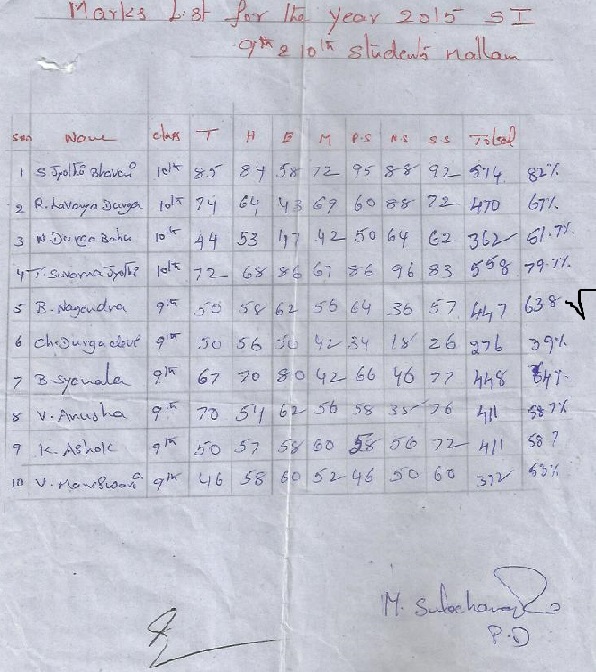 Marks List for the year 2015 SI
9th & 10th Students Mallam
Name Class T H E M P.S N.S S.S Total
1 S Jyothi Bhavani 10th 85 84 58 72 95 88 92 574 82%
2 R. Lavanya Durga 10th 74 64 43 69 60 88 72 470 67%
3 10th 44 53 47 42 50 64 62 362 51.7%
4 T. Swarna Jyothi 10th 72 68 86 67 86 96 83 558 79.7%
5 B. Nagendra 9th 55 58 62 56 64 36 57 447 63.8 √
6 Ch. Durga devi 9th 50 56 50 42 34 18 26 276 39%
7 B Syamala 9th 67 70 80 42 66 46 77 448 64%
8 V. Anusha 9th 70 54 62 56 58 35 76 411 58.7%
9 K. Ashok 9th 50 57 58 60 58 56 72 411 58.7
10 V. 9th 46 58 60 52 46 50 60 372 53%
M.
P.D